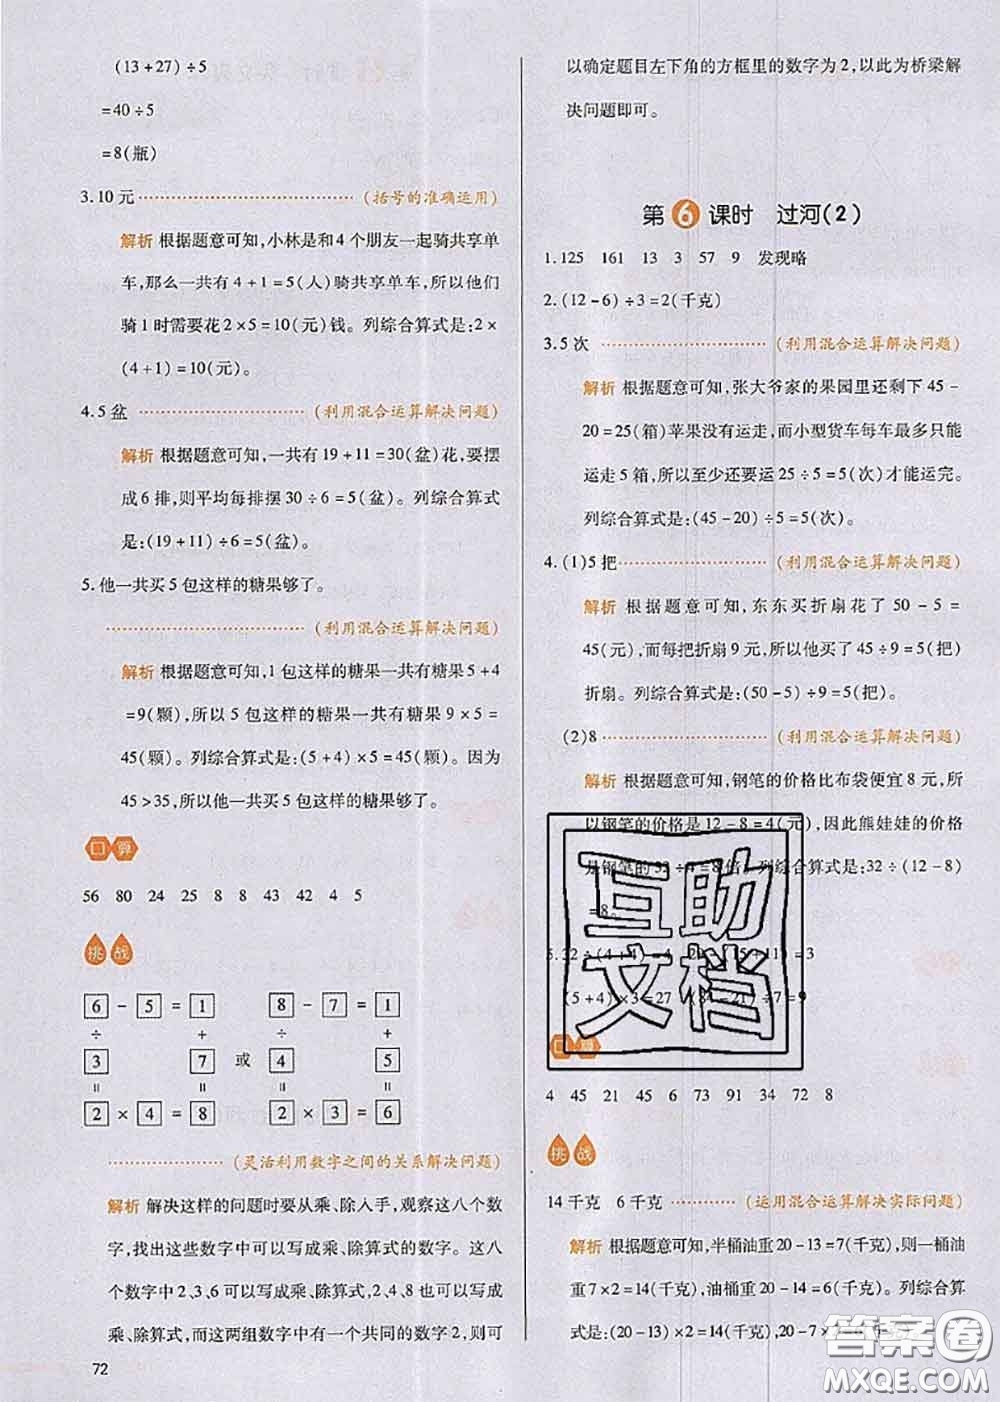 (13+27)÷5
=40÷5
=8(瓶)
3.10元 (括号的准确运用)
解析 根据题意可知,小林是和4个朋友一起骑共享单
车,那么一共有4+1=5(人)骑共享单车,所以他们
骑1时需要花2×5=10(元)钱。列综合算式是:2×
(4+1)=10(元)。
4.5盆 (利用混合运算解决问题)
解析 根据题意可知,一共有19+11=30(盆)花,要摆
成6排,则平均每排摆30÷6=5(盆)。列综合算式
是:(19+11)÷6=5(盆)。
5.他一共买5包这样的糖果够了。
(利用混合运算解决问题)
解析 根据题意可知,1包这样的糖果一共有糖果5+4
=9(颗),所以5包这样的糖果一共有糖果9×5=
45(颗)。列综合算式是:(5+4)×5=45(颗)。因为
45>35,所以他一共买5包这样的糖果够了。
口算
56 80 24 25 8 8 43 42 4 5
挑战
6 - 5 = 1 8 - 7 = 1
÷ + ÷ +
3 7 或 4 5
= = = =
2 × 4 = 8 2 × 3 = 6
(灵活利用数字之间的关系解决问题)
解析 解决这样的问题时要从乘、除入手,观察这八个数
字,找出这些数字中可以写成乘、除算式的数字。这八
个数字中2、3、6可以写成乘、除算式,2、4、8也可以写成
乘、除算式,而这两组数字中有一个共同的数字2,则可
72
以确定题目左下角的方框里的数字为2,以此为桥梁解
决问题即可。
第6课时 过河(2)
1.125 161 13 3 57 9 发现略
2.(12-6)÷3=2(千克)
3.5次 (利用混合运算解决问题)
解析 根据题意可知,张大爷家的果园里还剩下45-
20=25(箱)苹果没有运走,而小型货车每车最多只能
运走5箱,所以至少还要运25÷5=5(次)才能运完。
列综合算式是:(45-20)÷5=5(次)。
4.(1)5把 (利用混合运算解决问题)
解析 根据题意可知,东东买折扇花了50-5=
45(元),而每把折扇9元,所以东东买了45÷9=5(把)
折扇。列综合算式是:(50-5)÷9=5(把)。
(2)8 (利用混合运算解决问题)
解析 根据题意可知,钢笔的价格比布袋便宜8元,所
以钢笔的价格是12-8=4(元),因此熊娃娃的价格
是钢笔的32÷4=8倍。列综合算式是:32÷(12-8)
=8。
5.32÷(4+4)=4 (15+11)=3
(5+4)×3=27 (84-21)÷7=9
口算
4 45 21 45 6 73 91 34 72 8
挑战
14千克 6千克 (运用混合运算解决实际问题)
解析 根据题意可知,半桶油重20-13=7(千克),则一桶油
重7×2=14(千克),油桶重20-14=6(千克)。列综合算
式是:(20-13)×2=14(千克),20-7×2=6(千克)。
互助文档
答案卷
MXQE.COM